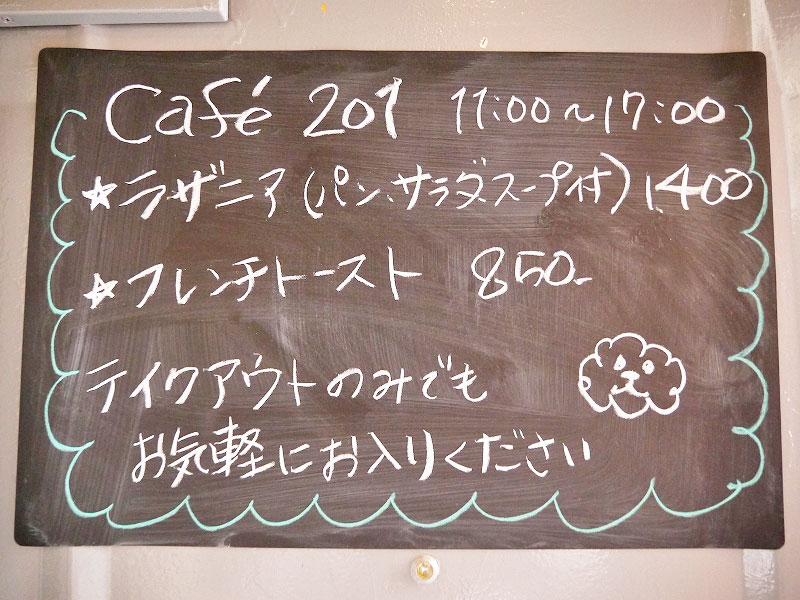 Café 201 11:00~17:00
★ラザニア(パン、サラダ、スープ付) 1,400
★フレンチトースト 850-
テイクアウトのみでも
お気軽にお入りください